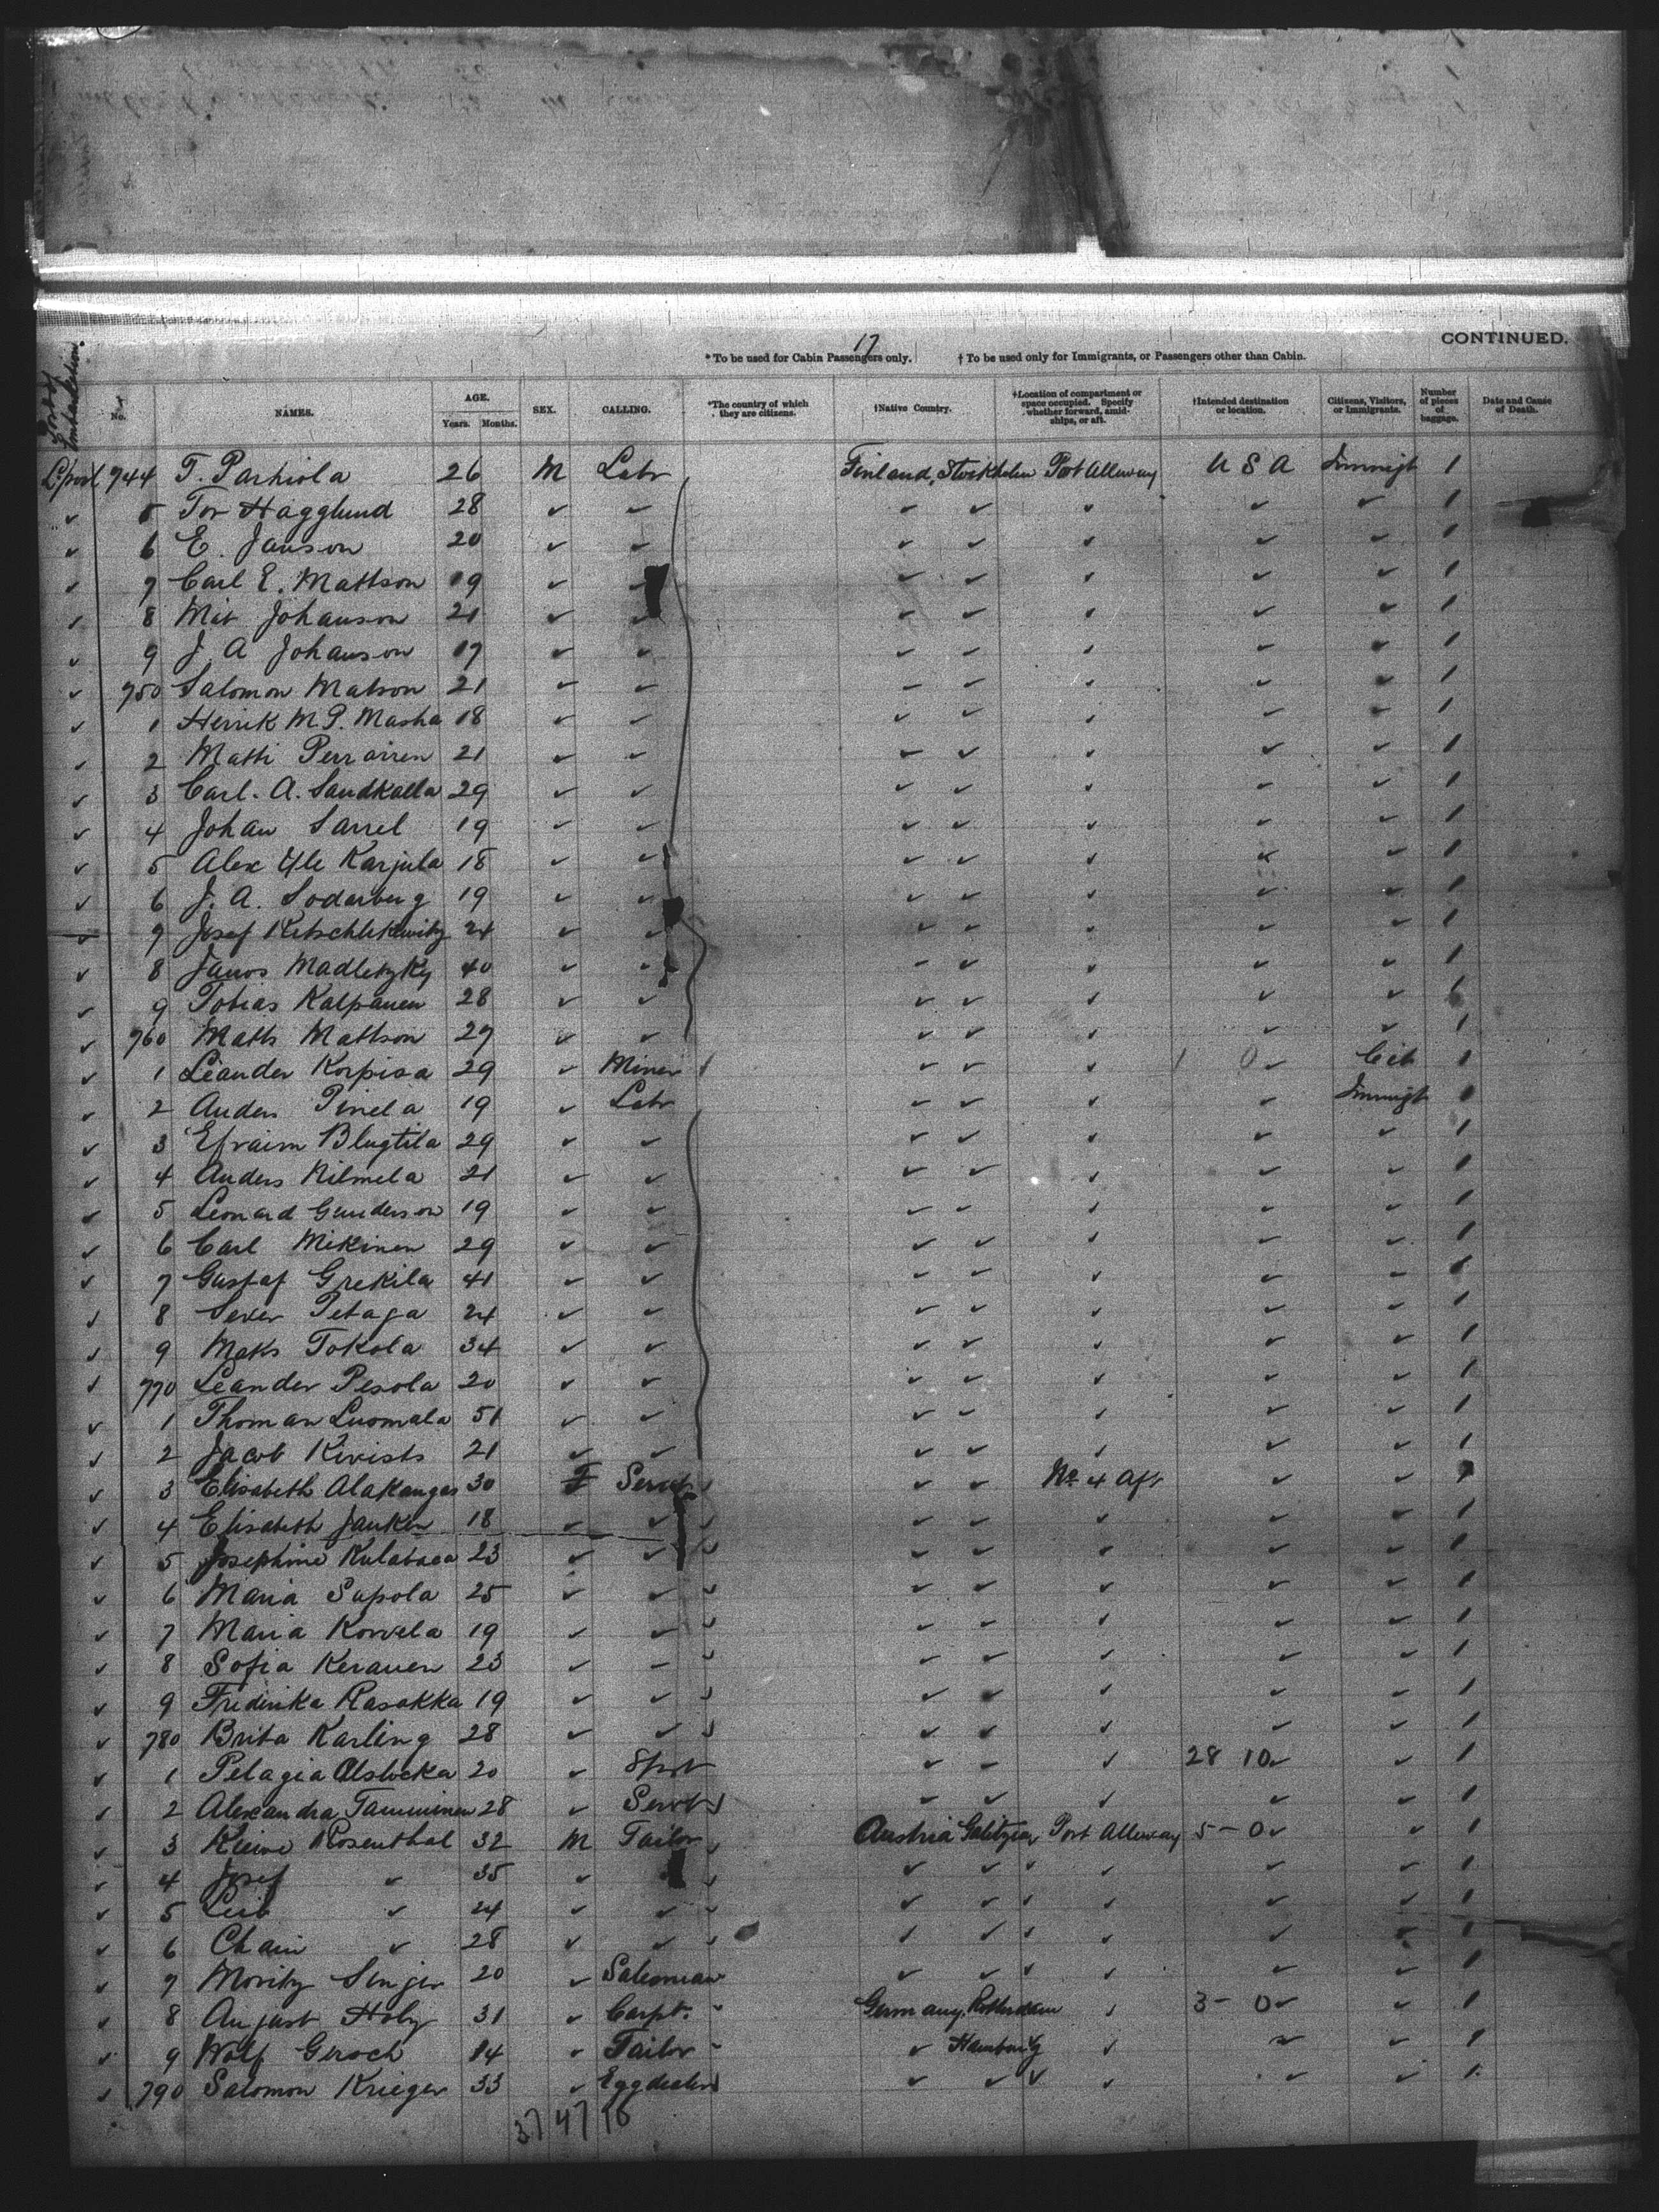 17
CONTINUED.
* To be used for Cabin Passengers only. † To be used only for Immigrants, or Passengers other than Cabin.
Port of Embarkation. No. NAMES. AGE. Years. Months. SEX. CALLING. *The country of which they are citizens. †Native Country. †Location of compartment or space occupied. Specify whether forward, amidships, or aft. †Intended destination or location. Citizens, Visitors, or Immigrants. Number of pieces of baggage. Date and Cause of Death.
L'pool 744 T. Parhiola 26 M Labr Finland, Stockholm Port Alleway U S A Immigt 1
✓ 5 Tor Hagglund 28 ✓ ✓ ✓ ✓ ✓ ✓ ✓ 1
✓ 6 E. Janson 20 ✓ ✓ ✓ ✓ ✓ ✓ ✓ 1
✓ 7 Carl E. Mattson 19 ✓ ✓ ✓ ✓ ✓ ✓ ✓ 1
✓ 8 Mit Johanson 21 ✓ ✓ ✓ ✓ ✓ ✓ ✓ 1
✓ 9 J. A Johanson 17 ✓ ✓ ✓ ✓ ✓ ✓ ✓ 1
✓ 750 Salomon Matson 21 ✓ ✓ ✓ ✓ ✓ ✓ ✓ 1
✓ 1 Henrik M. P. Masha 18 ✓ ✓ ✓ ✓ ✓ ✓ ✓ 1
✓ 2 Matti 21 ✓ ✓ ✓ ✓ ✓ ✓ ✓ 1
✓ 3 Carl. A. Sandkalla 29 ✓ ✓ ✓ ✓ ✓ ✓ ✓ 1
✓ 4 Johan Sarrel 19 ✓ ✓ ✓ ✓ ✓ ✓ ✓ 1
✓ 5 Alex Yle Karjula 18 ✓ ✓ ✓ ✓ ✓ ✓ ✓ 1
✓ 6 J. A. Soderberg 19 ✓ ✓ ✓ ✓ ✓ ✓ ✓ 1
✓ 7 Josef 24 ✓ ✓ ✓ ✓ ✓ ✓ ✓ 1
✓ 8 Janos Madletzky 40 ✓ ✓ ✓ ✓ ✓ ✓ ✓ 1
✓ 9 Tobias Kalpanen 28 ✓ ✓ ✓ ✓ ✓ ✓ ✓ 1
✓ 760 Matts Mattson 27 ✓ ✓ ✓ ✓ ✓ ✓ ✓ 1
✓ 1 Leander Korpisa 29 ✓ Miner ✓ ✓ ✓ 1 0 ✓ Cit 1
✓ 2 Anders Pinela 19 ✓ Labr ✓ ✓ ✓ ✓ Immigt 1
✓ 3 Efraim Blugtila 29 ✓ ✓ ✓ ✓ ✓ ✓ ✓ 1
✓ 4 Anders Nilmela 21 ✓ ✓ ✓ ✓ ✓ ✓ ✓ 1
✓ 5 Leonard Gunderson 19 ✓ ✓ ✓ ✓ ✓ ✓ ✓ 1
✓ 6 Carl Mikinen 29 ✓ ✓ ✓ ✓ ✓ ✓ ✓ 1
✓ 7 Gustaf Grekila 41 ✓ ✓ ✓ ✓ ✓ ✓ ✓ 1
✓ 8 Petaga 24 ✓ ✓ ✓ ✓ ✓ ✓ ✓ 1
✓ 9 Maks Tokola 34 ✓ ✓ ✓ ✓ ✓ ✓ ✓ 1
✓ 770 Leander Pesola 20 ✓ ✓ ✓ ✓ ✓ ✓ ✓ 1
✓ 1 Thoman Luomala 51 ✓ ✓ ✓ ✓ ✓ ✓ ✓ 1
✓ 2 Jacob Kivists 21 ✓ ✓ ✓ ✓ ✓ ✓ ✓ 1
✓ 3 Elisabeth Alakangas 30 F Servt ✓ ✓ No. 4 Aft ✓ ✓ 1
✓ 4 Elisabeth Janken 18 ✓ ✓ ✓ ✓ ✓ ✓ ✓ 1
✓ 5 Josephine 23 ✓ ✓ ✓ ✓ ✓ ✓ ✓ 1
✓ 6 Maria Sapola 25 ✓ ✓ ✓ ✓ ✓ ✓ ✓ 1
✓ 7 Maria Korvela 19 ✓ ✓ ✓ ✓ ✓ ✓ ✓ 1
✓ 8 Sofia Keranen 23 ✓ ✓ ✓ ✓ ✓ ✓ ✓ 1
✓ 9 Fridirika Rasakka 19 ✓ ✓ ✓ ✓ ✓ ✓ ✓ 1
✓ 780 Brita Karling 28 ✓ ✓ ✓ ✓ ✓ ✓ ✓ 1
✓ 1 Pelagia 20 ✓ Spst ✓ ✓ ✓ 28 10 ✓ ✓ 1
✓ 2 Alexandra Tamminen 28 ✓ Servt ✓ ✓ ✓ ✓ ✓ 1
✓ 3 Rosenthal 32 M Tailor Austria Galitzia Port Alleway 5 - 0 ✓ ✓ 1
✓ 4 Josef ✓ 35 ✓ ✓ ✓ ✓ ✓ ✓ ✓ 1
✓ 5 Leib ✓ 24 ✓ ✓ ✓ ✓ ✓ ✓ ✓ 1
✓ 6 Chain ✓ 28 ✓ ✓ ✓ ✓ ✓ ✓ ✓ 1
✓ 7 Moritz Singer 20 ✓ Salesman ✓ ✓ ✓ ✓ ✓ 1
✓ 8 August Holz 31 ✓ Carpt. Germany, Rotterdam ✓ 3 - 0 ✓ ✓ 1
✓ 9 Wolf Geroch 14 ✓ Tailor ✓ Hamburg ✓ ✓ ✓ 1
✓ 790 Salomon Krieger 33 ✓ Eggdealer ✓ ✓ ✓ ✓ ✓ 1
37 47 16